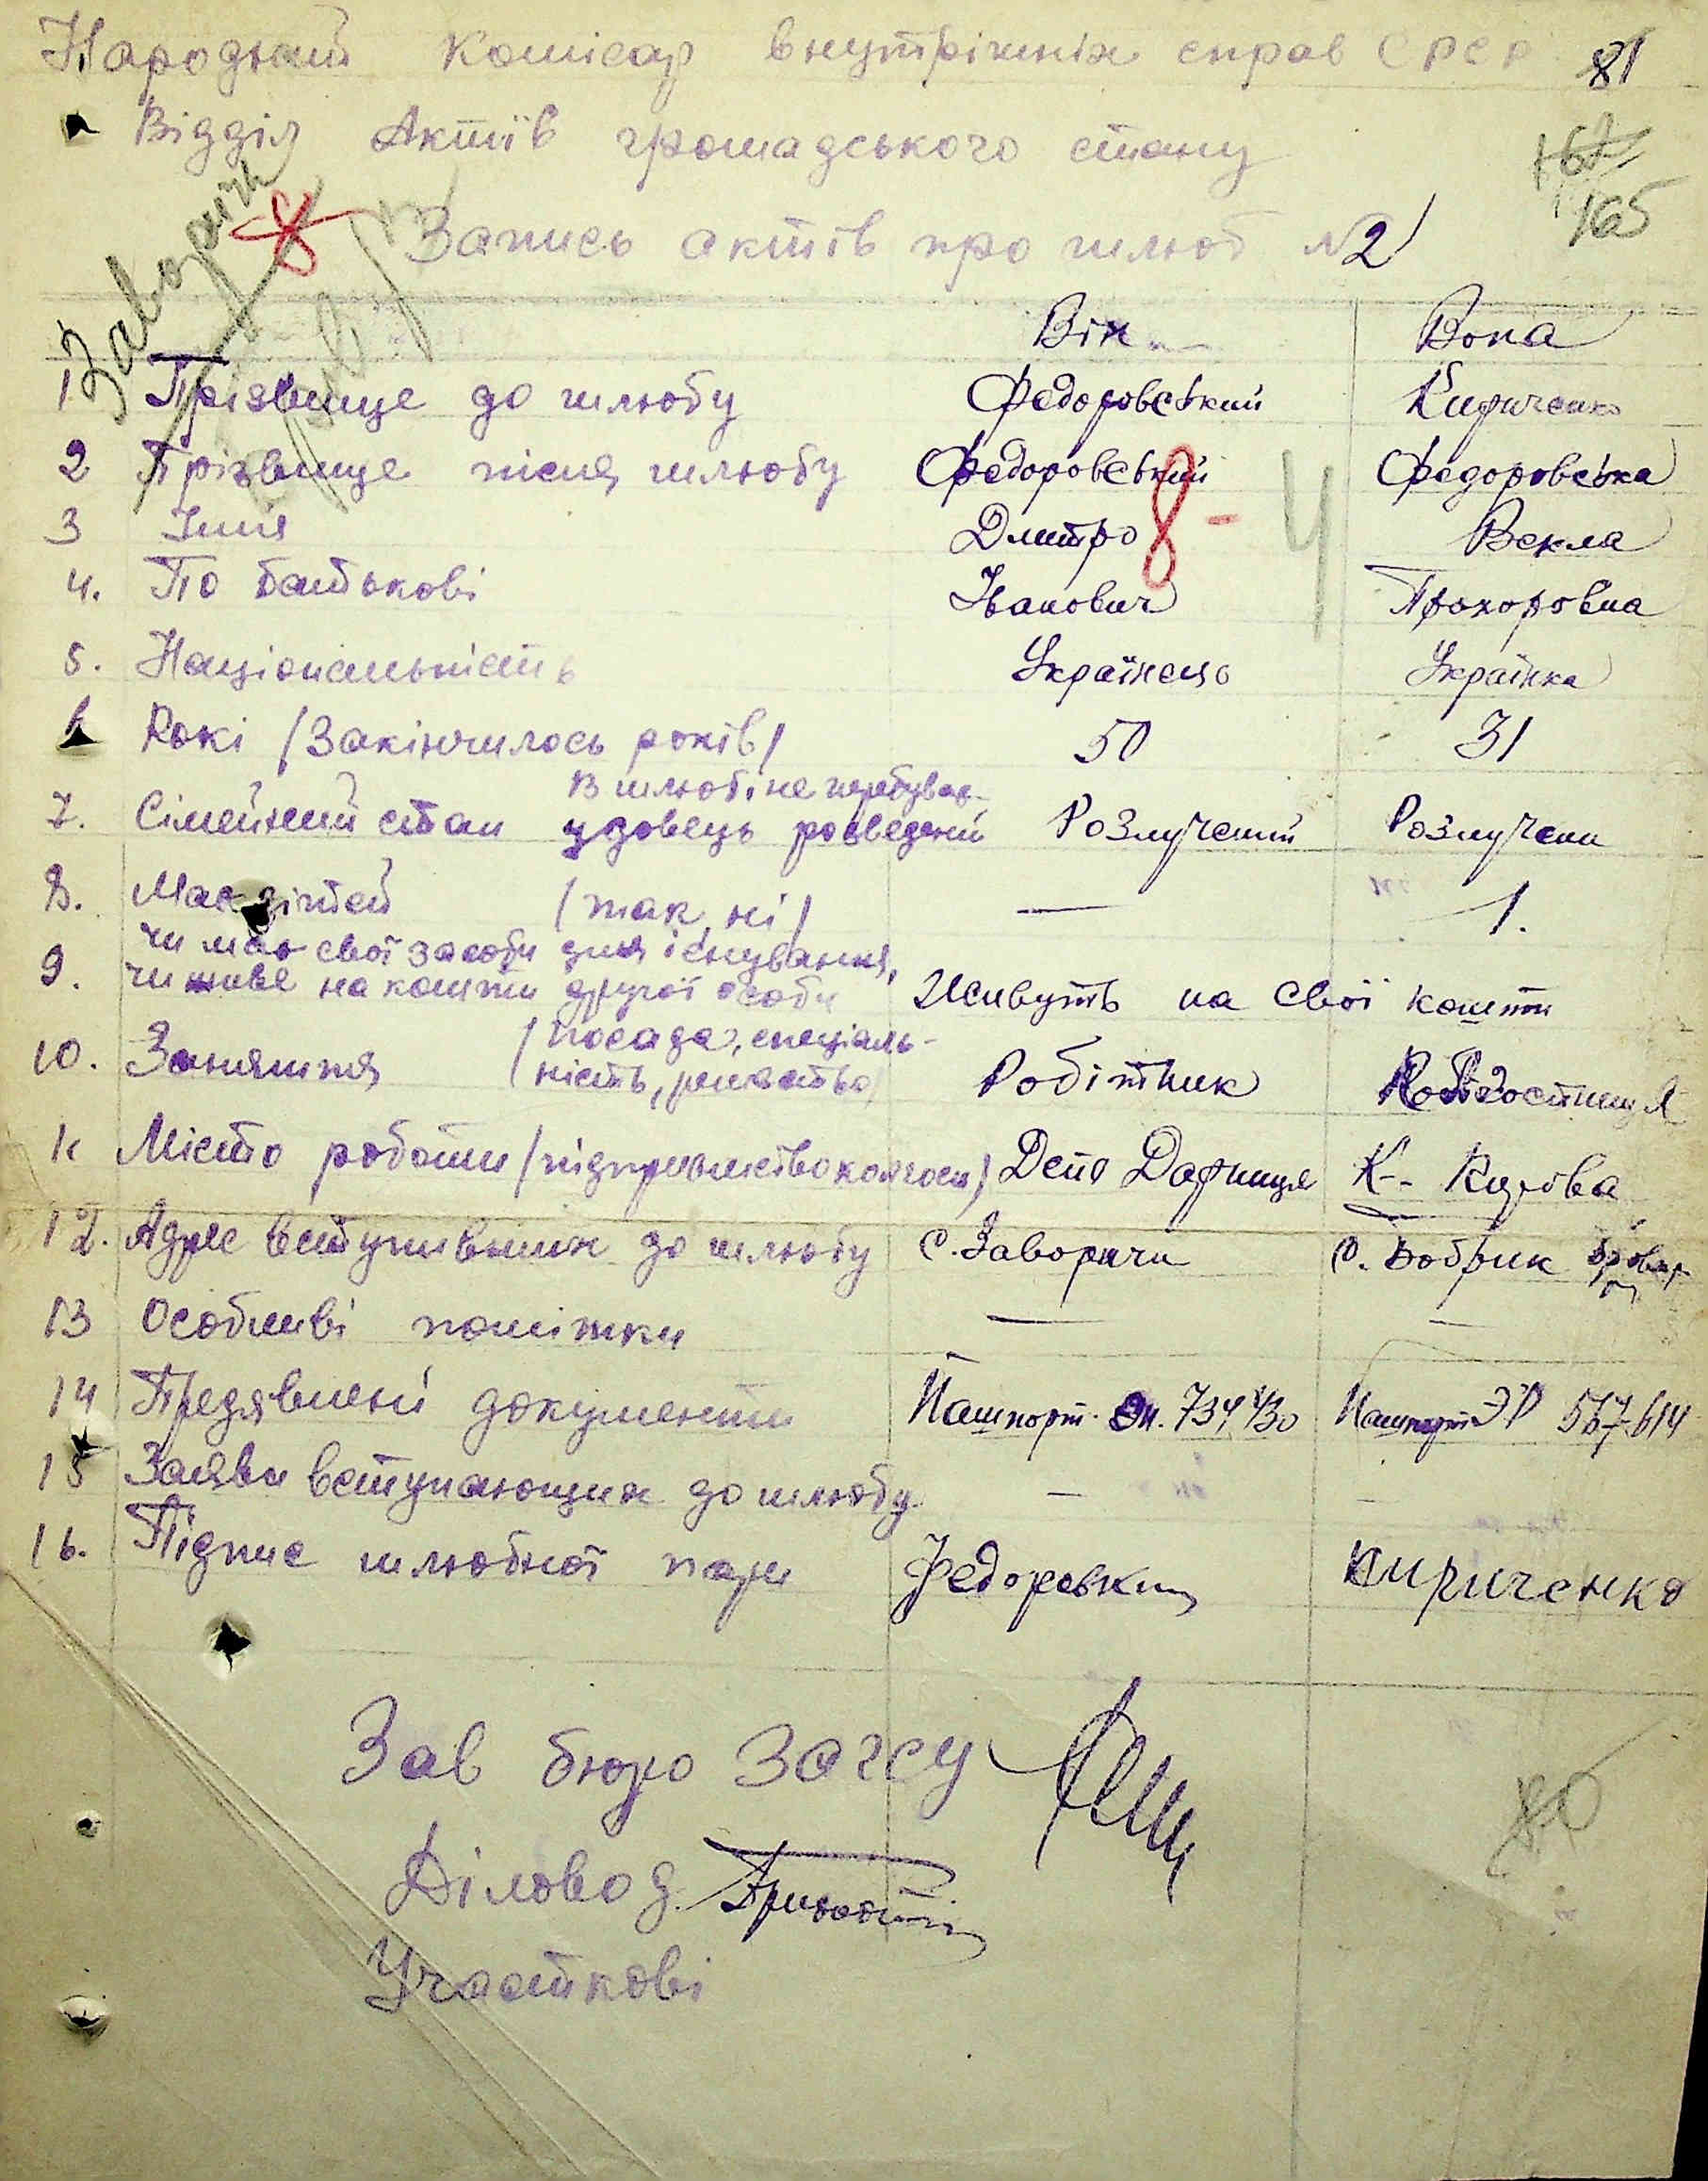 Народний Комісар внутрішніх справ СРСР 81
Відділ Актів громадського стану
167
165
Заворичі
Запись актів про шлюб №2
Він Вона
1 Прізвище до шлюбу Федоровський Кириченко
2 Прізвище після шлюбу Федоровський Федоровська
3 Імія Дмитро Векла
8 - 4
4. По батькові Іванович Прохоровна
5. Національність Українець Українка
6 Рокі /Закінчилось років/ 50 31
7. Сімейний стан В шлюбі не перебував
удовець розведений Розлучений Розлучена
8. Має дітей /так, ні/ — 1.
9. чи має свої засоби для існування,
чи живе на кошти другої особи Живуть на свої кошти
10. Заняття /посада, спеціаль-
ність, Робітник
11 Місто роботи / Депо Дарниця К-. Кирова
12. Адрес вступивших до шлюбу с. Заворичи с. Бобрик
13 Особливі помітки — —
14 Предявлені документи Пашпорт. 734430 Пашпорт ЭР 567614
15 Заява вступающих до шлюбу — —
16. Підпис шлюбної пари Федоровкий Кириченко
Зав бюро Загсу
80
Діловод
Участкові